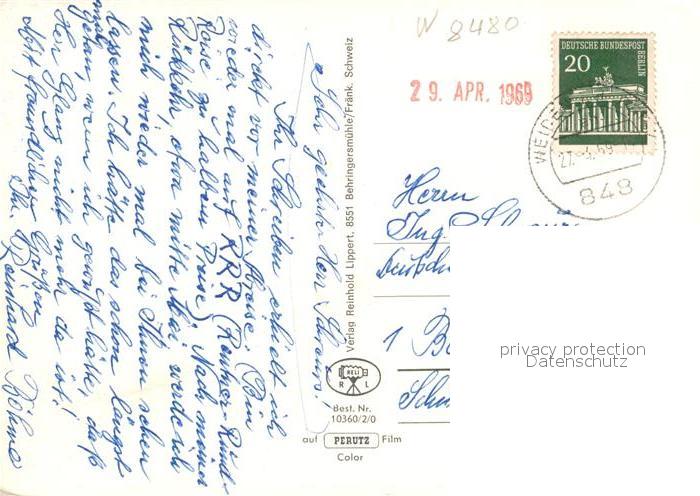 W 8480
DEUTSCHE BUNDESPOST
BERLIN
20
29. APR. 1969
WEIDEN
27.-4.69
848
Sehr geehrter Herr
Ihr Schreiben erhielt ich
direkt vor meiner Abreise (Bin
wieder mal auf RRR (Rentner-Rund-
Reise zu halben Preise). Nach meiner
Rückkehr, etwa mitte Mai werde ich
mich wieder mal bei Ihnen sehen
lassen. Ich hätte das schon längst
getan, wenn ich gewußt hätte daß
Herr Glanz nicht mehr da ist!
Mit freundlichen Grüßen
Ihr Reinhard Böhme
Verlag Reinhold Lippert, 8551 Behringersmühle/Fränk. Schweiz
RELI
R L
Best. Nr.
10360/2/0
auf PERUTZ Film
Color
Herrn
Ing.
1
privacy protection
Datenschutz